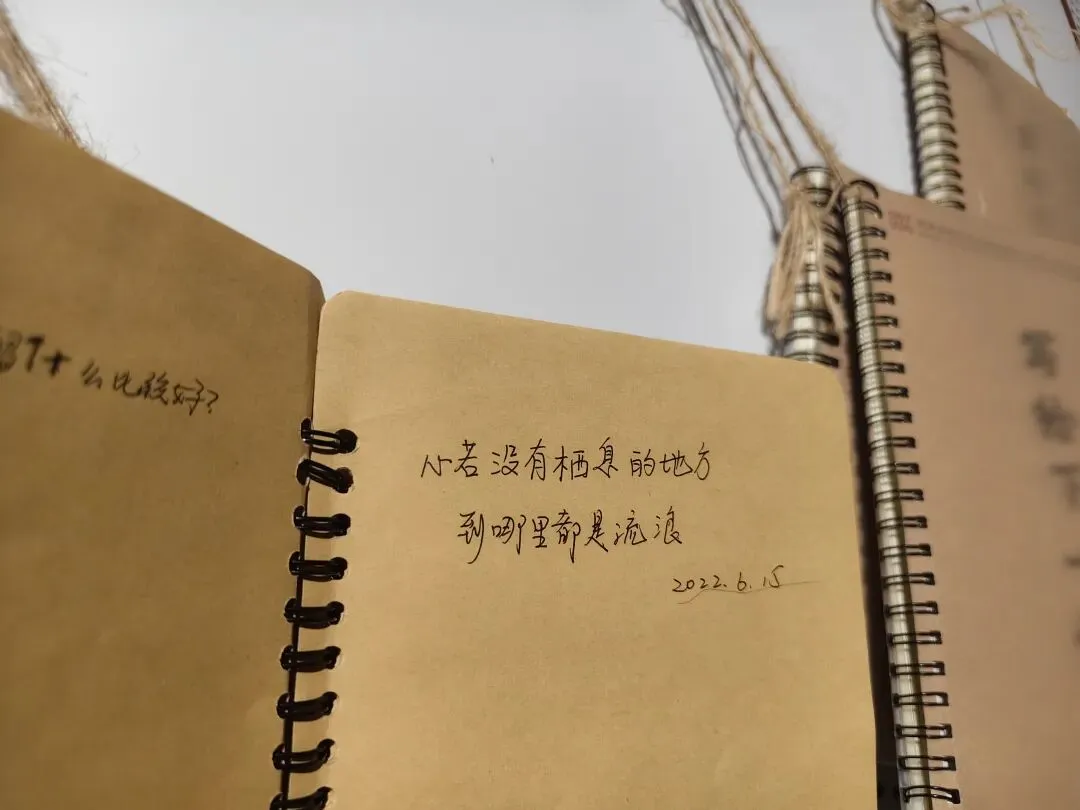 么比较好?
心若没有栖息的地方
到哪里都是流浪
2022.6.15
写给下一